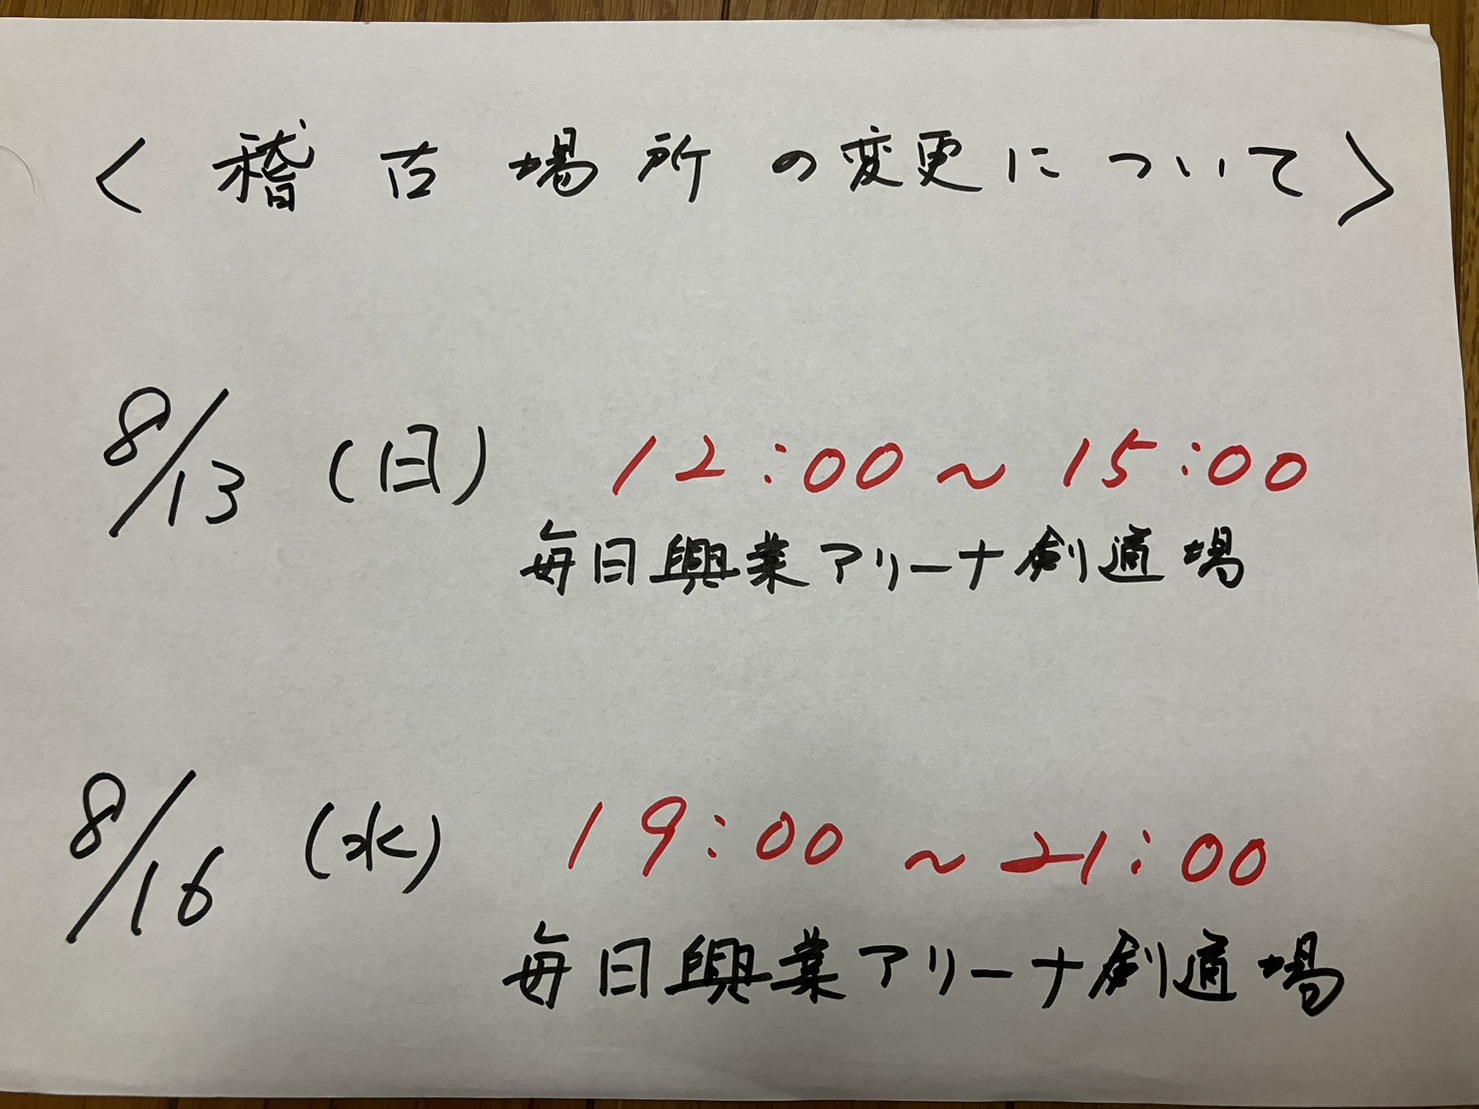 〈稽古場所の変更について〉
8/13(日) 12:00~15:00
毎日興業アリーナ剣道場
8/16(水) 19:00~21:00
毎日興業アリーナ剣道場